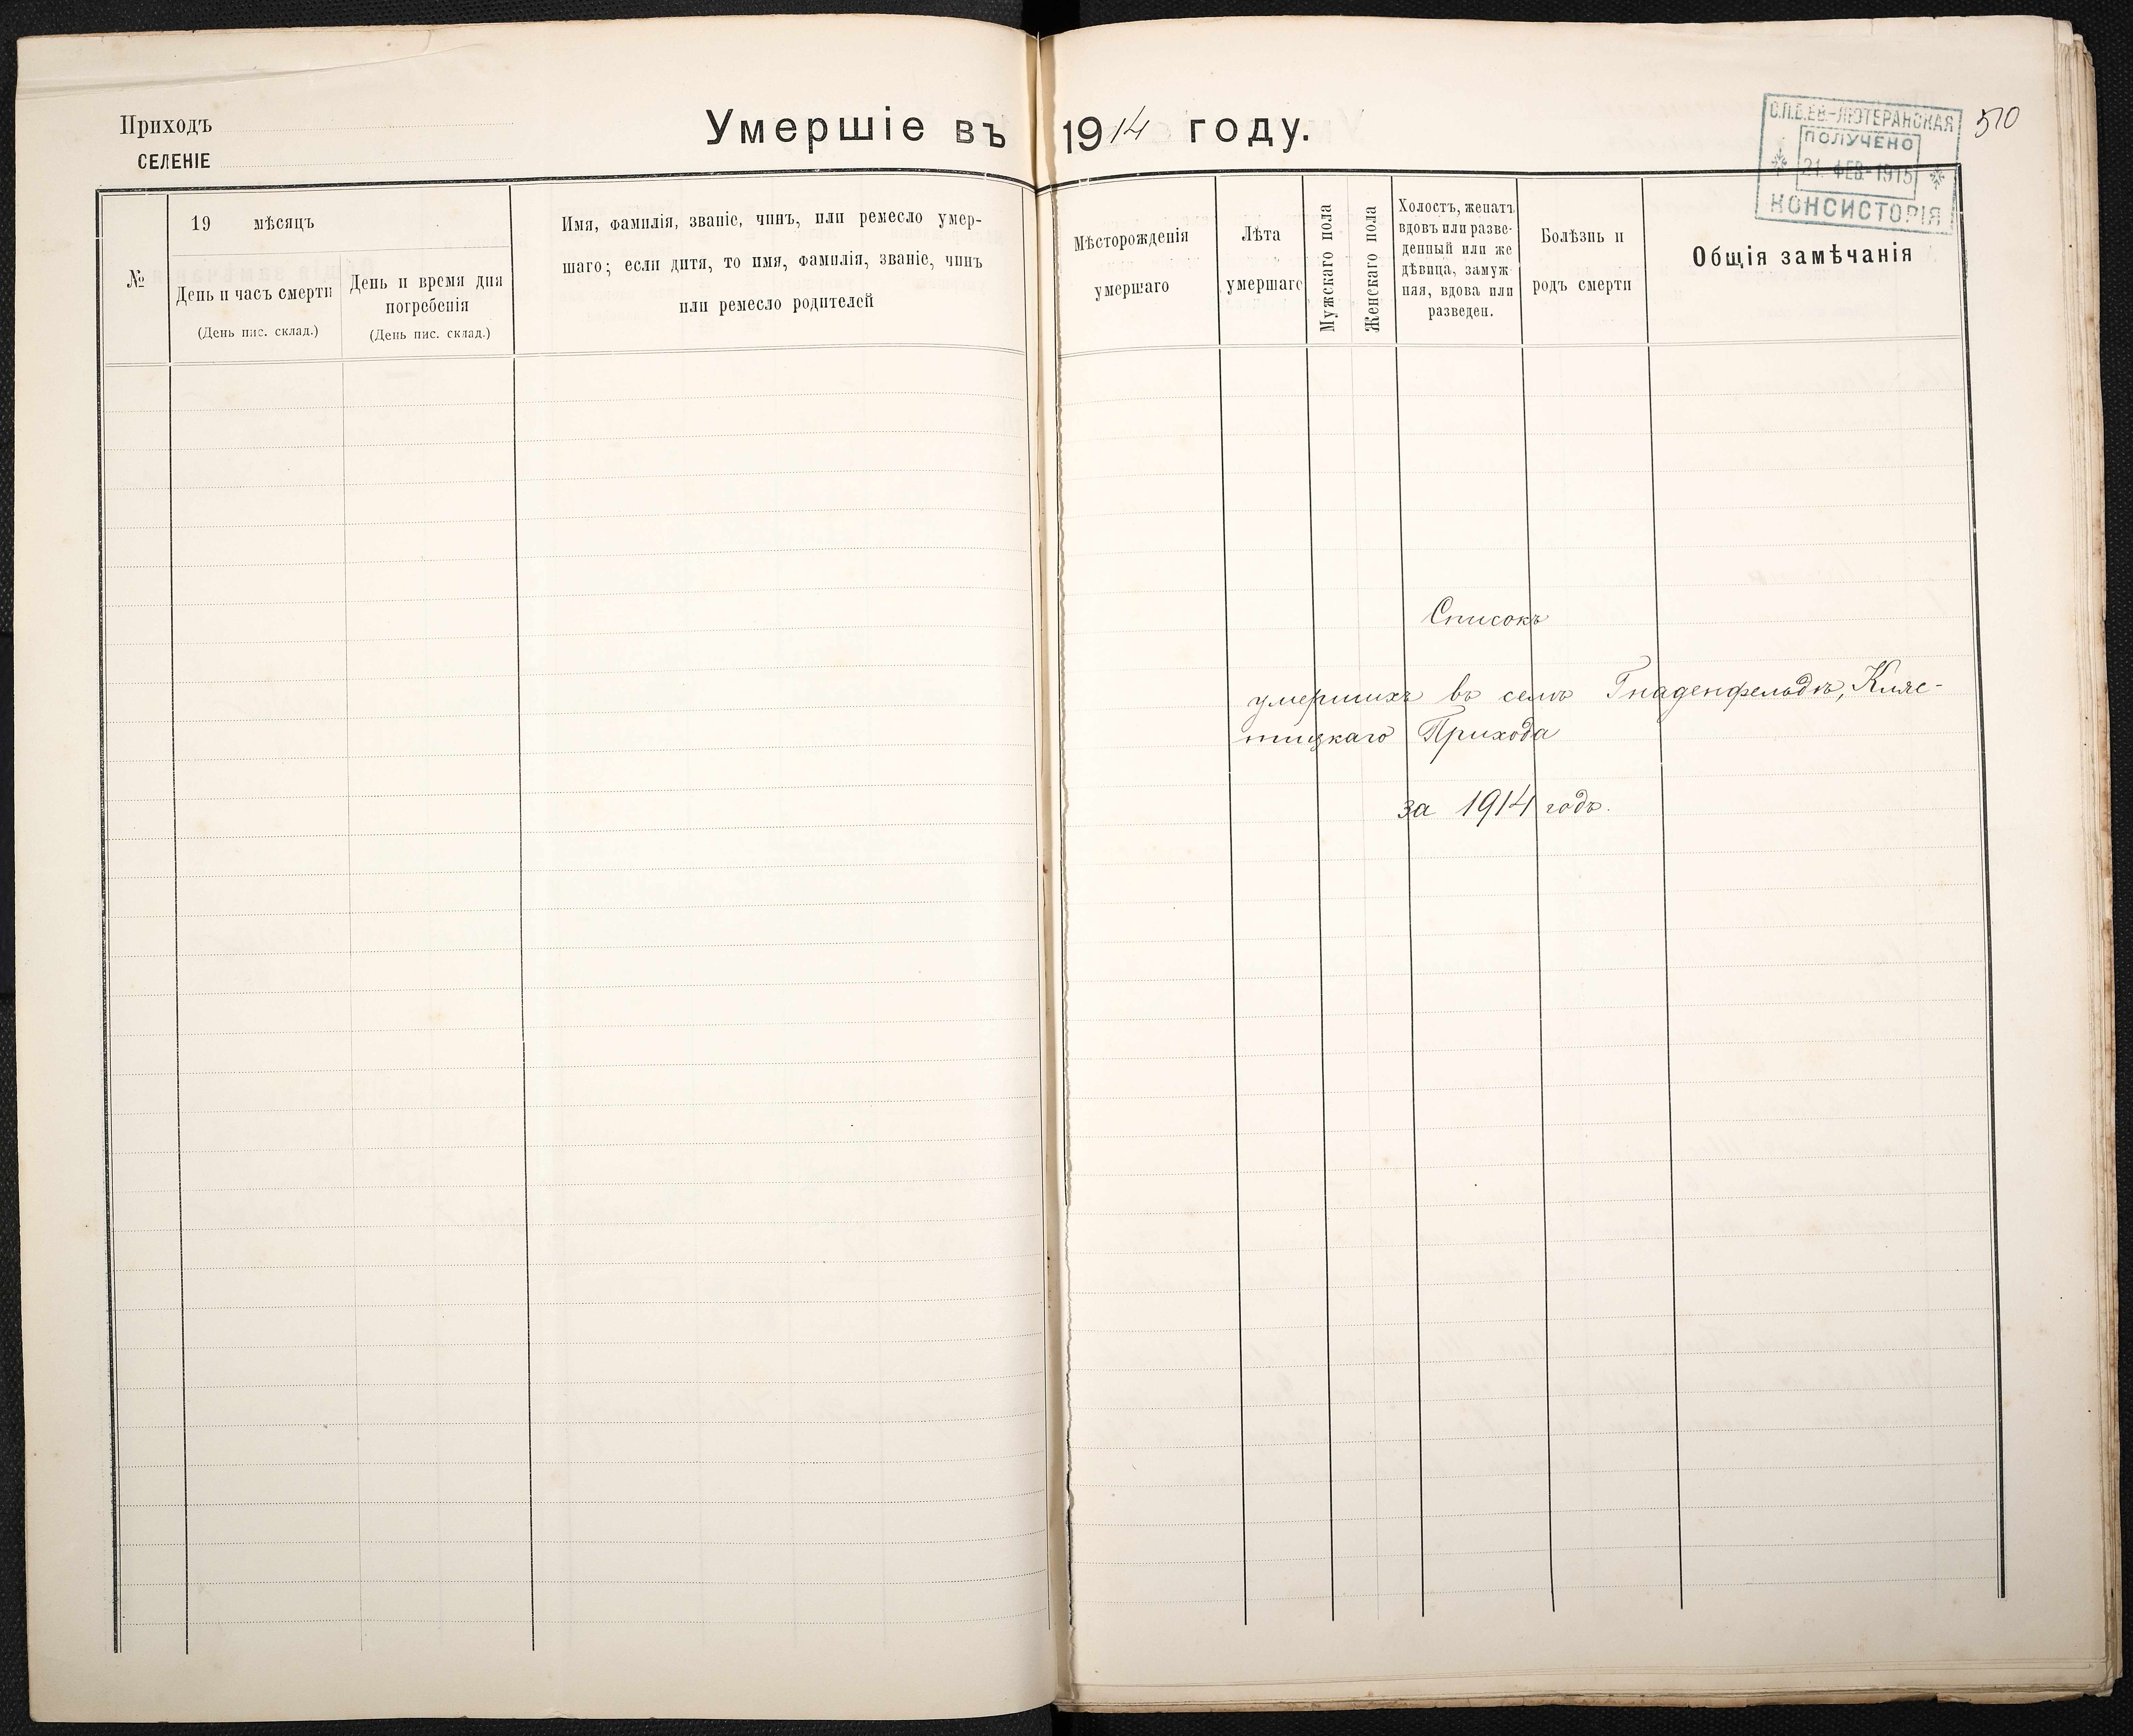 Приходъ
СЕЛЕНІЕ
Умершіе въ 1914 году.
С.П.Б.ЕВ.-ЛЮТЕРАНСКАЯ
ПОЛУЧЕНО
21. ФЕВ. 1915
КОНСИСТОРІЯ
510
№
19 мѣсяцъ
День и часъ смерти
(День пис. склад.)
День и время дня
погребенія
(День пис. склад.)
Имя, фамилія, званіе, чинъ, или ремесло умер-
шаго; если дитя, то имя, фамилія, званіе, чинъ
или ремесло родителей
Мѣсторожденія
умершаго
Лѣта
умершаго
Мужскаго пола
Женскаго пола
Холостъ, женатъ
вдовъ или разве-
денный или же
дѣвица, замуж-
няя, вдова или
разведен.
Болѣзнь и
родъ смерти
Общія замѣчанія
Списокъ
умершихъ въ селѣ Гнаденфельдѣ, Кляс-
тицкаго Прихода
за 1914 годъ.